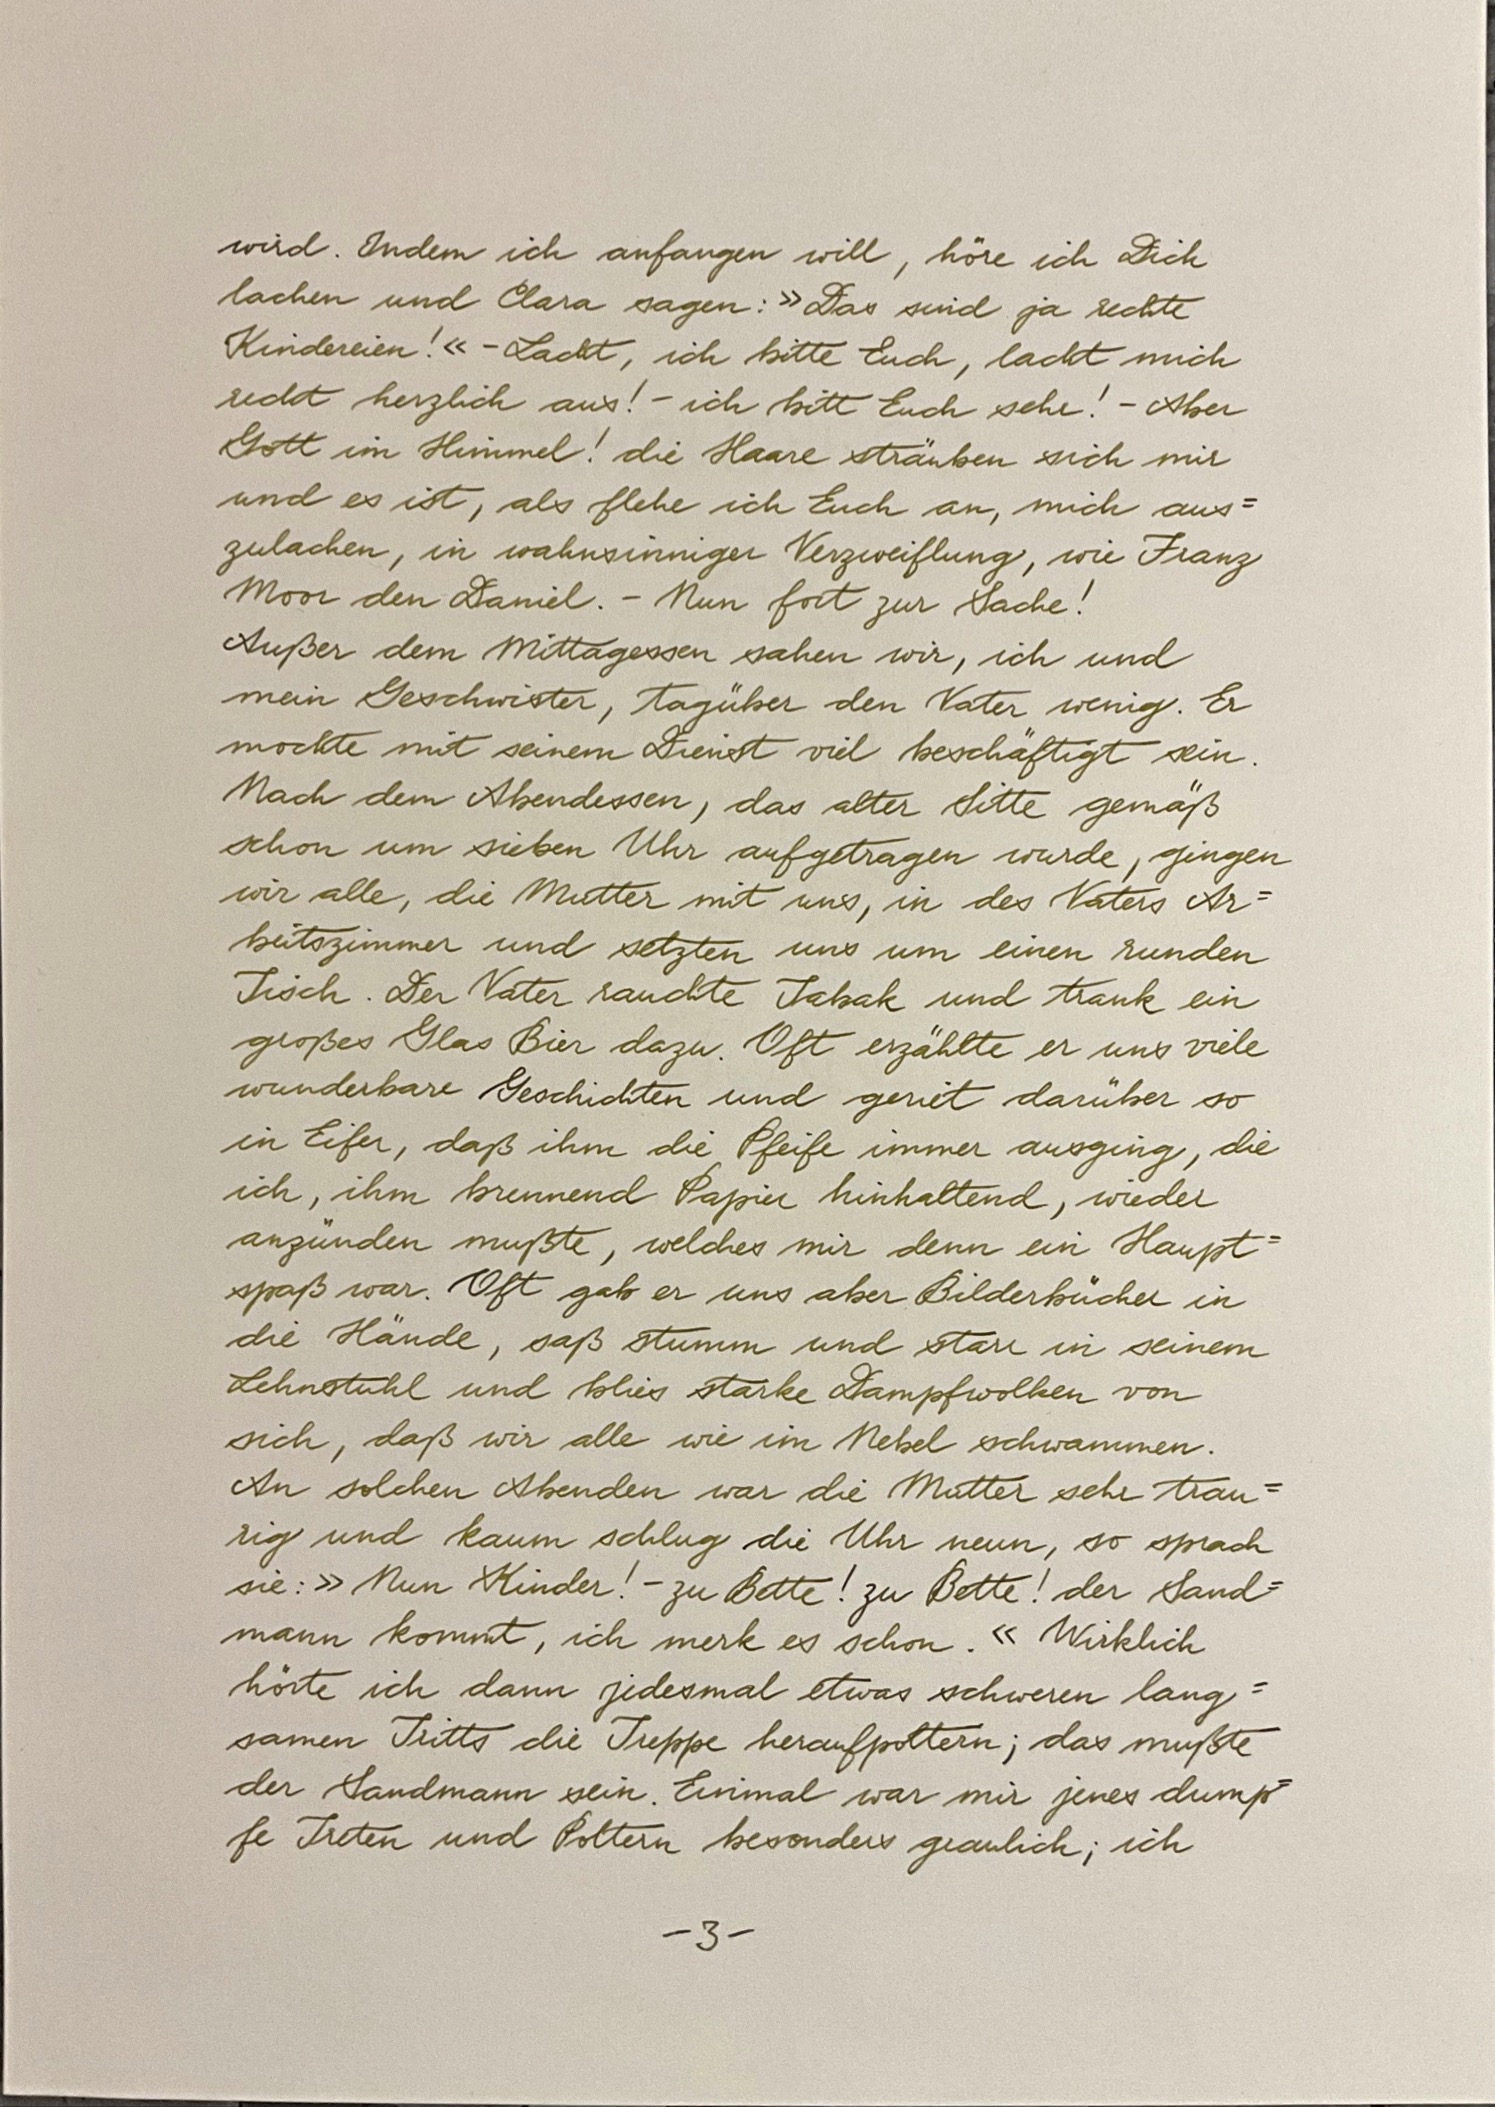 wird. Indem ich anfangen will, höre ich Dich
lachen und Clara sagen: »Das sind ja rechte
Kindereien!« – Lacht, ich bitte Euch, lacht mich
recht herzlich aus! – ich bitt Euch sehr! – Aber
Gott im Himmel! die Haare sträuben sich mir
und es ist, als flehe ich Euch an, mich aus=
zulachen, in wahnsinniger Verzweiflung, wie Franz
Moor den Daniel. – Nun fort zur Sache!
Außer dem Mittagessen sahen wir, ich und
mein Geschwister, tagüber den Vater wenig. Er
mochte mit seinem Dienst viel beschäftigt sein.
Nach dem Abendessen, das alter Sitte gemäß
schon um sieben Uhr aufgetragen wurde, gingen
wir alle, die Mutter mit uns, in des Vaters Ar=
beitszimmer und setzten uns um einen runden
Tisch. Der Vater rauchte Tabak und trank ein
großes Glas Bier dazu. Oft erzählte er uns viele
wunderbare Geschichten und geriet darüber so
in Eifer, daß ihm die Pfeife immer ausging, die
ich, ihm brennend Papier hinhaltend, wieder
anzünden mußte, welches mir denn ein Haupt=
spaß war. Oft gab er uns aber Bilderbücher in
die Hände, saß stumm und starr in seinem
Lehnstuhl und blies starke Dampfwolken von
sich, daß wir alle wie im Nebel schwammen.
An solchen Abenden war die Mutter sehr trau=
rig und kaum schlug die Uhr neun, so sprach
sie: »Nun Kinder! – zu Bette! zu Bette! der Sand=
mann kommt, ich merk es schon.« Wirklich
hörte ich dann jedesmal etwas schweren lang=
samen Tritts die Treppe heraufpoltern; das mußte
der Sandmann sein. Einmal war mir jenes dump=
fe Treten und Poltern besonders graulich; ich
–3–